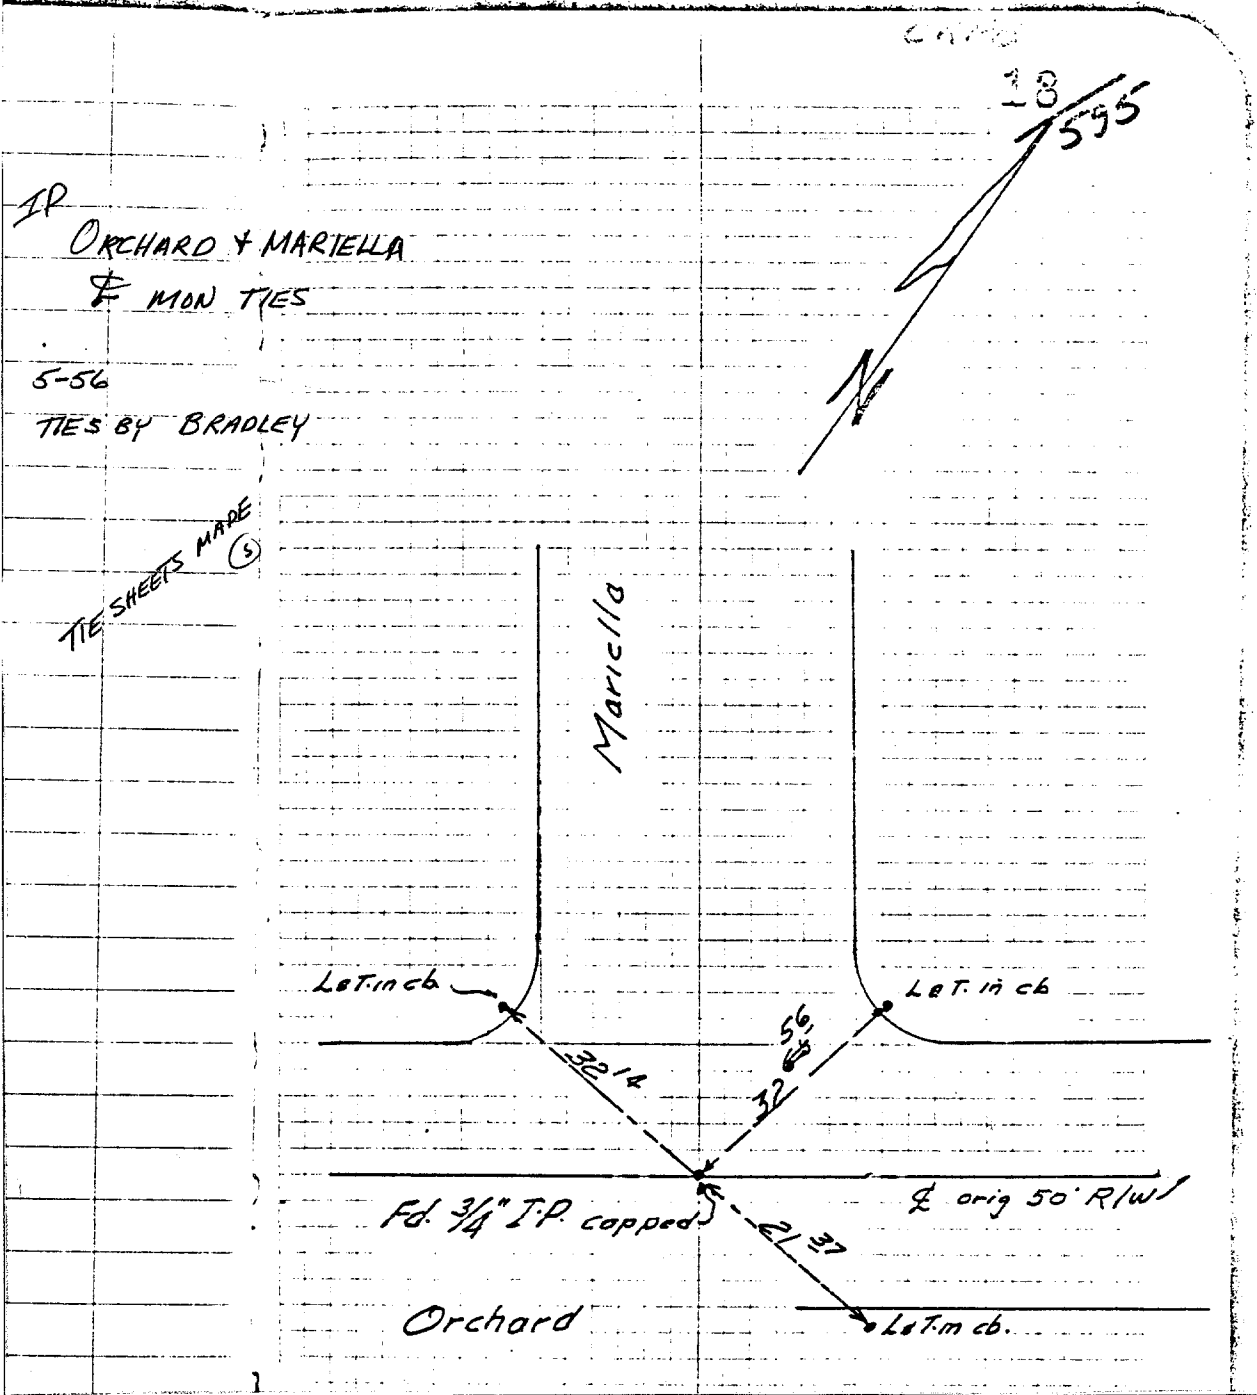 18
595
IP
ORCHARD & MARIELLA
℄ MON TIES
5-56
TIES BY BRADLEY
TIE SHEETS MADE
S
N
Mariella
L&T. in cb
L&T. in cb
32 14
32 56
Fd. 3/4" I.P. capped
℄ orig 50' R/W
21 37
Orchard
L&T. in cb.